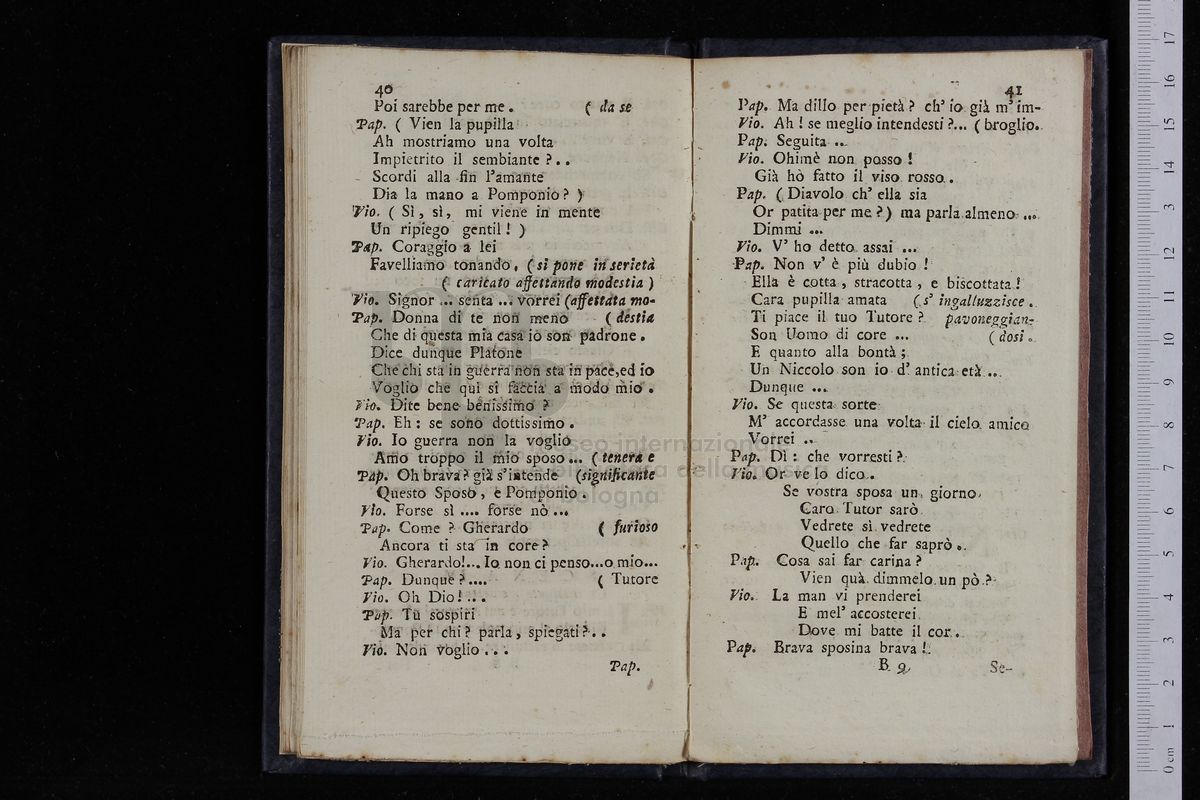 40
Poi sarebbe per me . ( da se
Pap. ( Vien la pupilla
Ah mostriamo una volta
Impietrito il sembiante ? . .
Scordi alla fin l'amante
Dia la mano a Pomponio ? )
Vio. ( Sì, sì, mi viene in mente
Un ripiego gentil ! )
Pap. Coraggio a lei
Favelliamo tonando, ( si pone in serietà
( caricato affettando modestia )
Vio. Signor ... senta ... vorrei (affettata mo-
Pap. Donna di te non meno ( destia
Che di questa mia casa io son padrone .
Dice dunque Platone
Che chi sta in guerra non sta in pace,ed io
Voglio che qui si faccia a modo mio .
Vio. Dite bene benissimo ?
Pap. Eh : se sono dottissimo .
Vio. Io guerra non la voglio
Amo troppo il mio sposo ... ( tenera e
Pap. Oh brava ? già s'intende (significante
Questo Sposo , è Pomponio .
Vio. Forse sì .... forse nò ...
Pap. Come ? Gherardo ( furioso
Ancora ti sta in core ?
Vio. Gherardo!... Io non ci penso...o mio...
Pap. Dunque ? .... ( Tutore
Vio. Oh Dio! . . .
Pap. Tu sospiri
Ma per chi ? parla , spiegati ? . .
Vio. Non voglio . . .
Pap.
41
Pap. Ma dillo per pietà ? ch' io già m' im-
Vio. Ah ! se meglio intendesti ?... ( broglio.
Pap. Seguita ...
Vio. Ohimè non posso !
Già hò fatto il viso rosso .
Pap. ( Diavolo ch' ella sia
Or patita per me ? ) ma parla almeno ...
Dimmi ...
Vio. V' ho detto assai ...
Pap. Non v' è più dubio !
Ella è cotta , stracotta , e biscottata !
Cara pupilla amata ( s' ingalluzzisce .
Ti piace il tuo Tutore ? pavoneggian-
Son Uomo di core ... ( dosi .
E quanto alla bontà ;
Un Niccolo son io d' antica età ...
Dunque ...
Vio. Se questa sorte
M' accordasse una volta il cielo amico
Vorrei ..
Pap. Dì : che vorresti ?
Vio. Or ve lo dico .
Se vostra sposa un giorno
Caro Tutor sarò
Vedrete sì vedrete
Quello che far saprò .
Pap. Cosa sai far carina ?
Vien quà dimmelo un pò ?
Vio. La man vi prenderei
E mel' accosterei
Dove mi batte il cor .
Pap. Brava sposina brava !
B 2 Se-
museo internazionale
e biblioteca della musica
bologna
0 cm 1 2 3 4 5 6 7 8 9 10 11 12 13 14 15 16 17